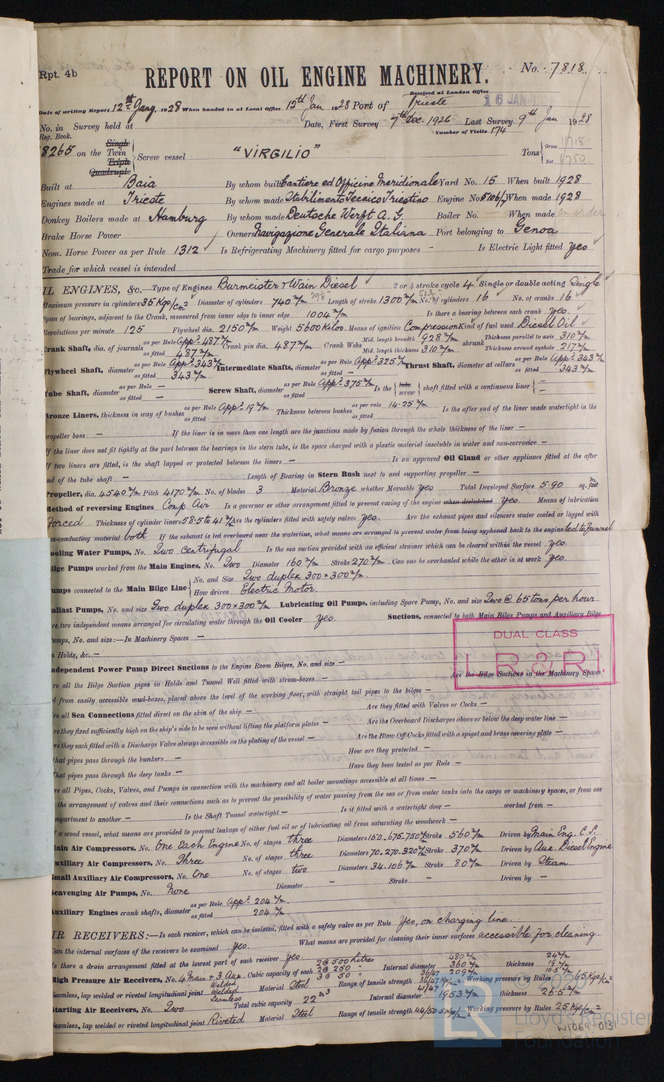 Rpt. 4b
REPORT ON OIL ENGINE MACHINERY.
No. 7818
Received at London Office
16 JAN
Date of writing Report 12th 1928 When handed in at Local Office 15th Jan 1928 Port of Trieste
No. in Survey held at Date, First Survey 7th Dec. 1926 Last Survey 9th Jan 1928
Reg. Book. Number of Visits 174
8265 on the Single Twin Triple Quadruple Screw vessel "VIRGILIO" Tons Gross Net
Built at Baia By whom built Cantiere ed Officine Meridionale Yard No. 15 When built 1928
Engines made at Trieste By whom made Stabilimento Tecnico Triestino Engine No. When made 1928
Donkey Boilers made at Hamburg By whom made Deutsche Werft A.G. Boiler No. When made
Brake Horse Power Owners Navigazione Generale Italiana Port belonging to Genoa
Nom. Horse Power as per Rule 1312 Is Refrigerating Machinery fitted for cargo purposes - Is Electric Light fitted Yes
Trade for which vessel is intended
IL ENGINES, &c. — Type of Engines Burmeister & Wain Diesel 2 or 4 stroke cycle 4 Single or double acting Single
Maximum pressure in cylinders 35 Kgs/cm² Diameter of cylinders 740 m/m Length of stroke 1300 m/m No. of cylinders 16 No. of cranks 16
Span of bearings, adjacent to the Crank, measured from inner edge to inner edge 1004 m/m Is there a bearing between each crank Yes.
Revolutions per minute 125 Flywheel dia. 2150 m/m Weight 5600 Kilos. Means of ignition Compression Kind of fuel used Diesel Oil
Crank Shaft, dia. of journals as per Rule App. 487 m/m as fitted 487 m/m Crank pin dia. 487 m/m Crank Webs Mid. length breadth 928 m/m Mid. length thickness 310 m/m shrunk Thickness parallel to axis 310 m/m Thickness around eyehole 217 m/m
Flywheel Shaft, diameter as per Rule App. 343 m/m as fitted 343 m/m Intermediate Shafts, diameter as per Rule App. 325 m/m as fitted Thrust Shaft, diameter at collars as per Rule App. 343 m/m as fitted 343 m/m
Tube Shaft, diameter as per Rule - as fitted - Screw Shaft, diameter as per Rule App. 375 m/m as fitted Is the tube screw shaft fitted with a continuous liner -
Bronze Liners, thickness in way of bushes as per Rule App. 19 m/m as fitted Thickness between bushes as per rule 14.25 m/m as fitted Is the after end of the liner made watertight in the
propeller boss - If the liner is in more than one length are the junctions made by fusion through the whole thickness of the liner -
If the liner does not fit tightly at the part between the bearings in the stern tube, is the space charged with a plastic material insoluble in water and non-corrosive -
If two liners are fitted, is the shaft lapped or protected between the liners - Is an approved Oil Gland or other appliance fitted at the after
end of the tube shaft - Length of Bearing in Stern Bush next to and supporting propeller -
Propeller, dia. 4540 m/m Pitch 4170 m/m No. of blades 3 Material Bronze whether Moveable Yes Total Developed Surface 5.90 sq.
Method of reversing Engines Comp. Air Is a governor or other arrangement fitted to prevent racing of the engine when declutched Yes. Means of lubrication
Forced Thickness of cylinder liners 58.5 to 41 m/m Are the cylinders fitted with safety valves Yes. Are the exhaust pipes and silencers water cooled or lagged with
non-conducting material both If the exhaust is led overboard near the waterline, what means are arranged to prevent water being syphoned back to the engine led to Funnel
Cooling Water Pumps, No. Two centrifugal Is the sea suction provided with an efficient strainer which can be cleared within the vessel Yes.
Bilge Pumps worked from the Main Engines, No. Two Diameter 160 m/m Stroke 270 m/m. Can one be overhauled while the other is at work Yes.
Pumps connected to the Main Bilge Line No. and Size Two duplex 300×300 m/m.
How driven Electric Motor.
Ballast Pumps, No. and size Two duplex 300×300 m/m Lubricating Oil Pumps, including Spare Pump, No. and size Two @ 65 tons per hour
Are two independent means arranged for circulating water through the Oil Cooler Yes. Suctions, connected to both Main Bilge Pumps and Auxiliary Bilge
Pumps, No. and size:—In Machinery Spaces -
In Holds, &c. -
DUAL CLASS
L R & R I
Independent Power Pump Direct Suctions to the Engine Room Bilges, No. and size -
Are all the Bilge Suction pipes in Holds and Tunnel Well fitted with strum-boxes - Are the Bilge Suctions in the Machinery Spaces
led from easily accessible mud-boxes, placed above the level of the working floor, with straight tail pipes to the bilges -
Are all Sea Connections fitted direct on the skin of the ship - Are they fitted with Valves or Cocks -
Are they fixed sufficiently high on the ship's side to be seen without lifting the platform plates - Are the Overboard Discharges above or below the deep water line -
Are they each fitted with a Discharge Valve always accessible on the plating of the vessel - Are the Blow Off Cocks fitted with a spigot and brass covering plate -
What pipes pass through the bunkers - How are they protected -
What pipes pass through the deep tanks - Have they been tested as per Rule -
Are all Pipes, Cocks, Valves, and Pumps in connection with the machinery and all boiler mountings accessible at all times -
Is the arrangement of valves and their connections such as to prevent the possibility of water passing from the sea or from water tanks into the cargo or machinery spaces, or from one
compartment to another - Is the Shaft Tunnel watertight - Is it fitted with a watertight door - worked from -
If a wood vessel, what means are provided to prevent leakage of either fuel oil or of lubricating oil from saturating the woodwork -
Main Air Compressors, No. One each Engine No. of stages three Diameters 150.675.750 m/m Stroke 560 m/m Driven by Main Eng. C.S.
Auxiliary Air Compressors, No. Three No. of stages three Diameters 70.270.320 m/m Stroke 370 m/m Driven by Aux. Diesel Engine
Small Auxiliary Air Compressors, No. One No. of stages two Diameters 34.106 m/m Stroke 80 m/m Driven by Steam
Scavenging Air Pumps, No. None Diameter - Stroke - Driven by -
Auxiliary Engines crank shafts, diameter as per Rule App. 204 m/m. as fitted 204 m/m.
AIR RECEIVERS:—Is each receiver, which can be isolated, fitted with a safety valve as per Rule Yes, on charging line.
Can the internal surfaces of the receivers be examined Yes. What means are provided for cleaning their inner surfaces accessible for cleaning.
Is there a drain arrangement fitted at the lowest part of each receiver Yes
High Pressure Air Receivers, No. 4 Main + 3 Aux. Cubic capacity of each 2@ 500 litres 2@ 250 3@ 50 Internal diameter 480 m/m 360 m/m 209 m/m thickness 24 m/m 19 m/m 10.5 m/m
Seamless, lap welded or riveted longitudinal joint Welded Welded Seamless Material Steel Range of tensile strength Working pressure by Rules 65 Kgs/cm²
Starting Air Receivers, No. Two Total cubic capacity 22 m³ Internal diameter 1953 m/m thickness 26.5 m/m
Seamless, lap welded or riveted longitudinal joint Riveted Material Steel Range of tensile strength 44/50.5 Kgs/m² Working pressure by Rules 25 Kgs/cm²
Lloyd's Register
Foundation
W1069-0131